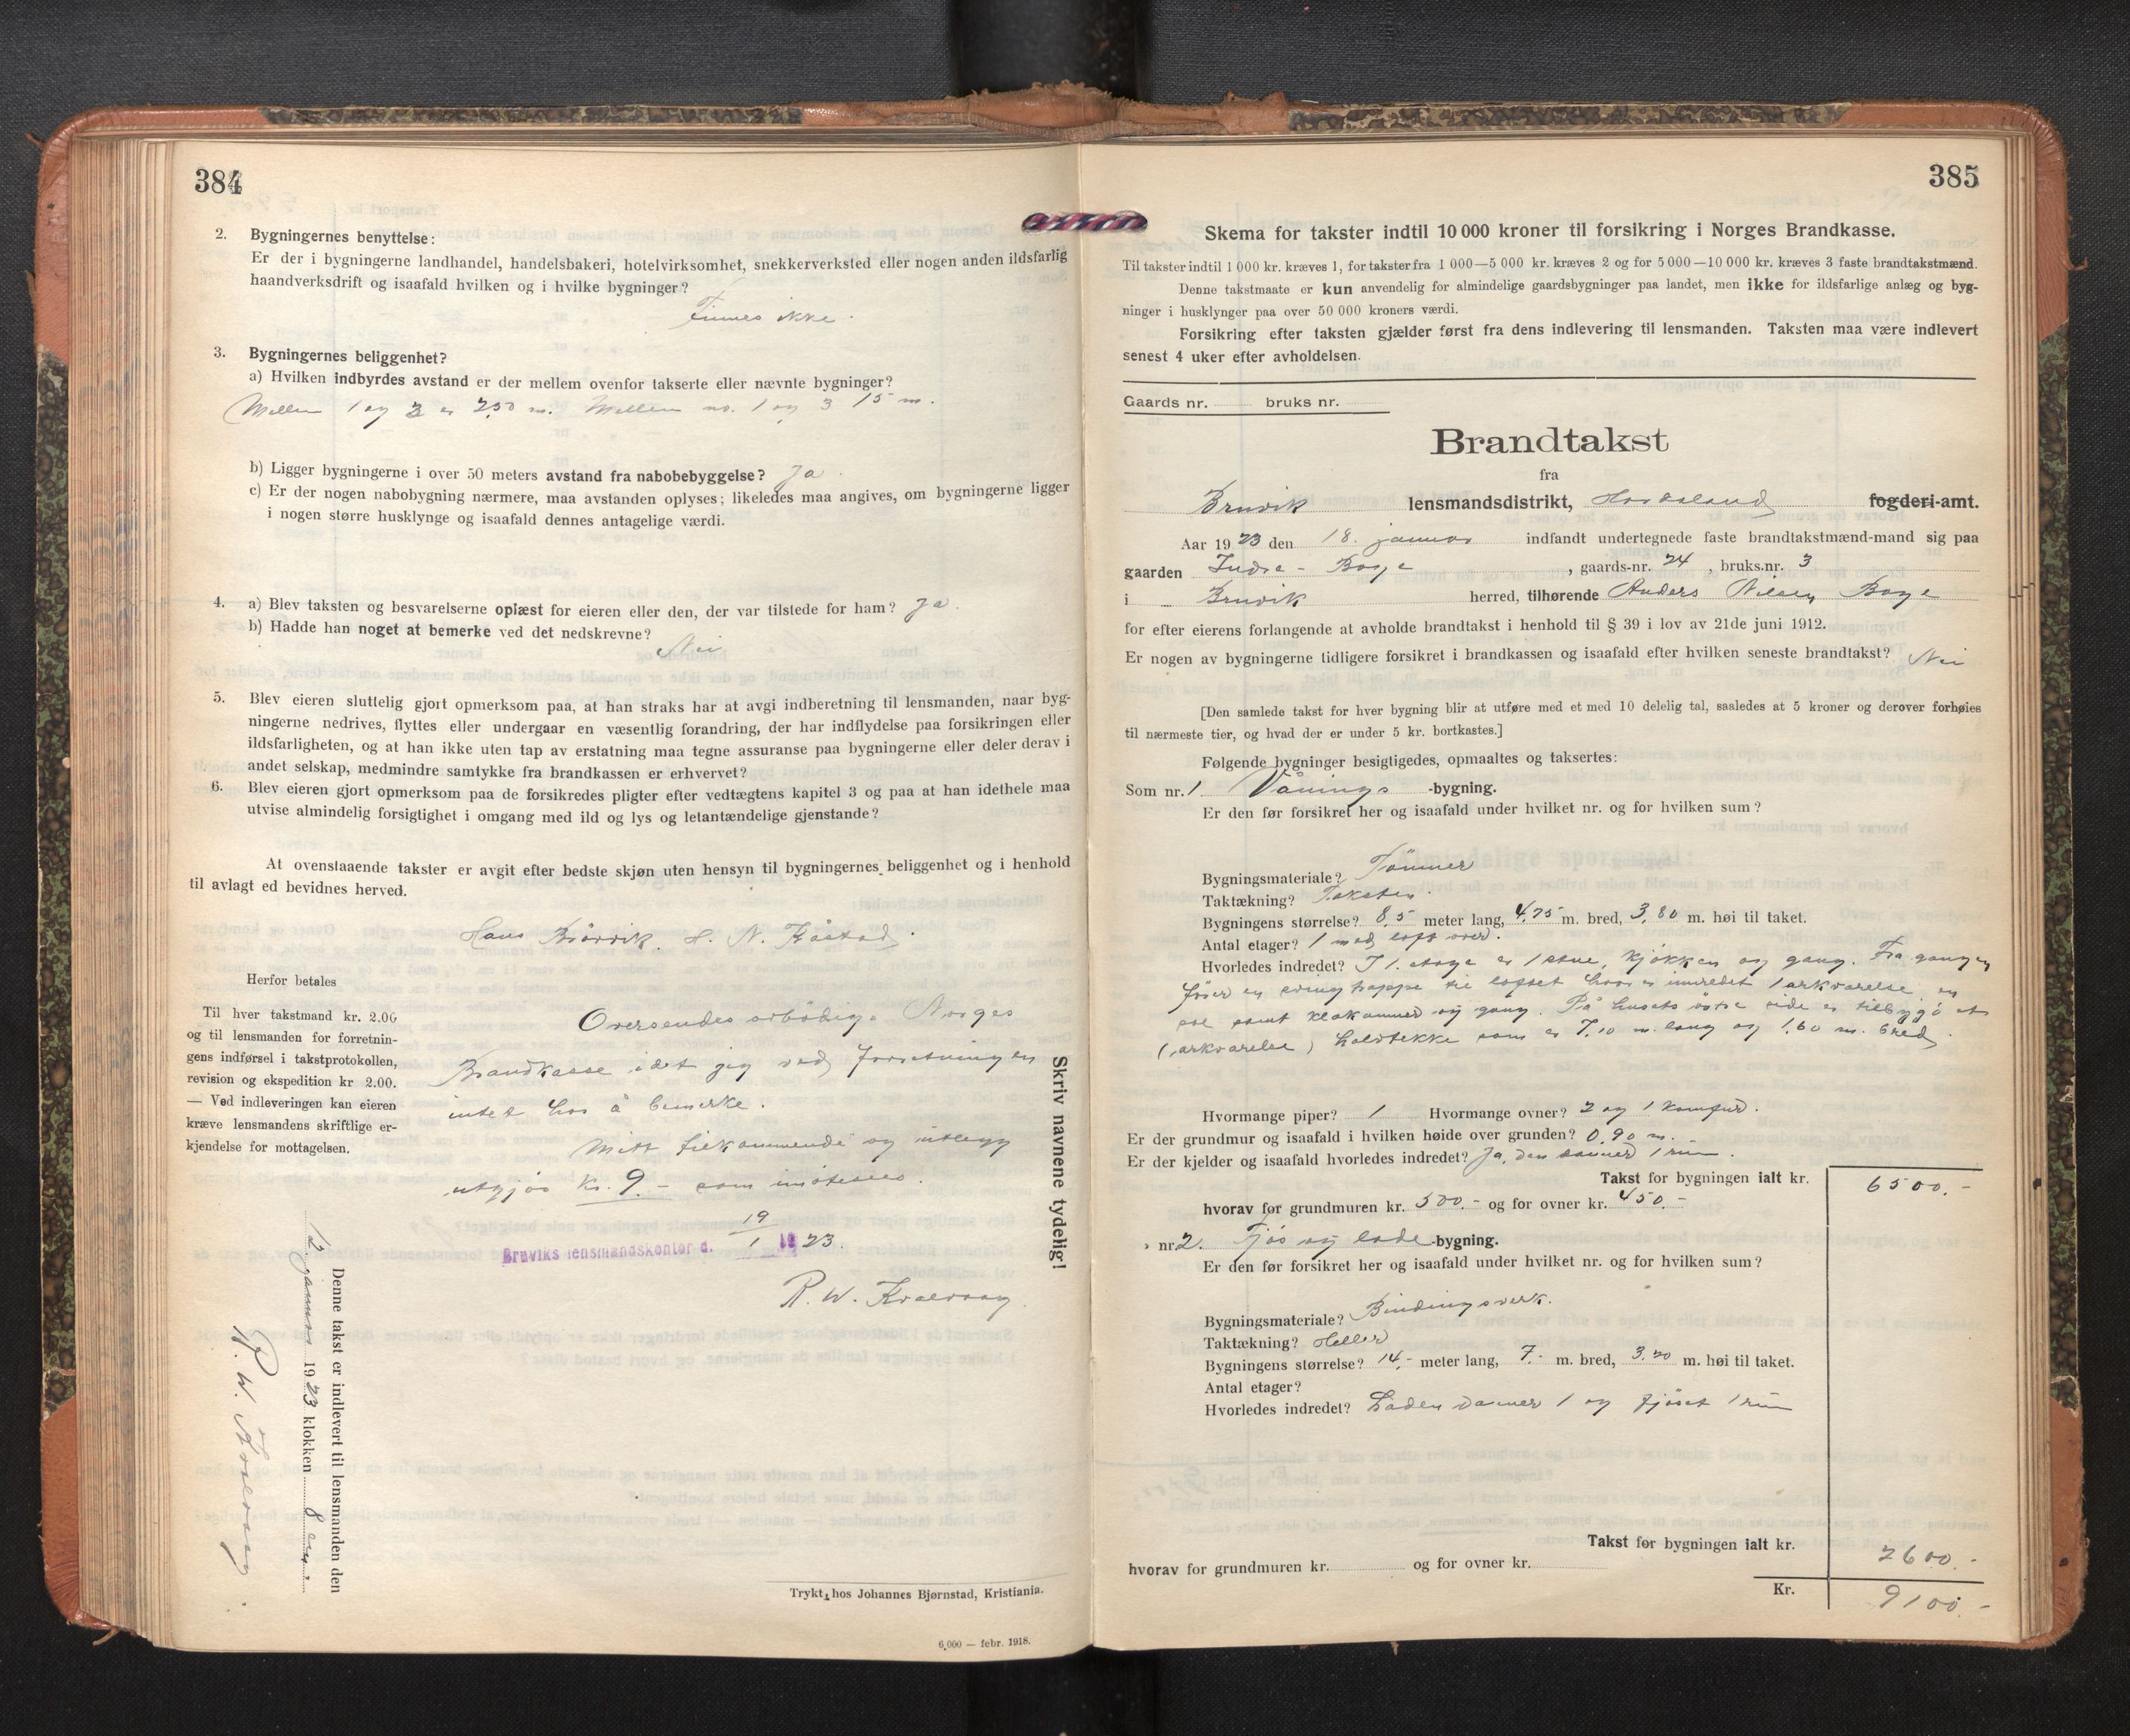 384
2. Bygningernes benyttelse:
Er der i bygningerne landhandel, handelsbakeri, hotelvirksomhet, snekkerverksted eller nogen anden ildsfarlig
haandverksdrift og isaafald hvilken og i hvilke bygninger?
Finnes ikke.
3. Bygningernes beliggenhet?
a) Hvilken indbyrdes avstand er der mellem ovenfor takserte eller nævnte bygninger?
Mellem 1 og 2 er 2,50 m. Mellem no. 1 og 3 15 m.
b) Ligger bygningerne i over 50 meters avstand fra nabobebyggelse? Ja.
c) Er der nogen nabobygning nærmere, maa avstanden oplyses; likeledes maa angives, om bygningerne ligger
i nogen større husklynge og isaafald dennes antagelige værdi.
4. a) Blev taksten og besvarelserne oplæst for eieren eller den, der var tilstede for ham? Ja.
b) Hadde han noget at bemerke ved det nedskrevne?
Nei
5. Blev eieren sluttelig gjort opmerksom paa, at han straks har at avgi indberetning til lensmanden, naar byg-
ningerne nedrives, flyttes eller undergaar en væsentlig forandring, der har indflydelse paa forsikringen eller
ildsfarligheten, og at han ikke uten tap av erstatning maa tegne assuranse paa bygningerne eller deler derav i
andet selskap, medmindre samtykke fra brandkassen er erhvervet?
6. Blev eieren gjort opmerksom paa de forsikredes pligter efter vedtægtens kapitel 3 og paa at han idethele maa
utvise almindelig forsigtighet i omgang med ild og lys og letantændelige gjenstande?
At ovenstaaende takster er avgit efter bedste skjøn uten hensyn til bygningernes beliggenhet og i henhold
til avlagt ed bevidnes herved.
Hans H. N.
Herfor betales
Til hver takstmand kr. 2.00
og til lensmanden for forretnin-
gens indførsel i takstprotokollen,
revision og ekspedition kr 2.00.
— Ved indleveringen kan eieren
kræve lensmandens skriftlige er-
kjendelse for mottagelsen.
Oversendes ærbødig. Norges
Brandkasse idet jeg ved forretningen
intet har å bemerke.
Mitt tilkommende og utlegg
utgjør kr. 9.- som imøtesees.
Bruviks lensmandskontor d. 19/1 1923.
R. W.
Skriv navnene tydelig!
Denne takst er indlevert til lensmanden den
januar 1923 klokken 8 em.
R. W.
Trykt hos Johannes Bjørnstad, Kristiania.
6,000 — febr. 1918.
385
Skema for takster indtil 10 000 kroner til forsikring i Norges Brandkasse.
Til takster indtil 1 000 kr. kræves 1, for takster fra 1 000—5 000 kr. kræves 2 og for 5 000—10 000 kr. kræves 3 faste brandtakstmænd.
Denne takstmaate er kun anvendelig for almindelige gaardsbygninger paa landet, men ikke for ildsfarlige anlæg og byg-
ninger i husklynger paa over 50 000 kroners værdi.
Forsikring efter taksten gjælder først fra dens indlevering til lensmanden. Taksten maa være indlevert
senest 4 uker efter avholdelsen.
Gaards nr. bruks nr.
Brandtakst
fra
Bruvik lensmandsdistrikt, Hordaland fogderi-amt.
Aar 1923 den 18. januar indfandt undertegnede faste brandtakstmænd-mand sig paa
gaarden Indre - Boge, gaards-nr. 24, bruks.nr. 3
i Bruvik herred, tilhørende Anders Nilsen Boge
for efter eierens forlangende at avholde brandtakst i henhold til § 39 i lov av 21de juni 1912.
Er nogen av bygningerne tidligere forsikret i brandkassen og isaafald efter hvilken seneste brandtakst? Nei
[Den samlede takst for hver bygning blir at utføre med et med 10 delelig tal, saaledes at 5 kroner og derover forhøies
til nærmeste tier, og hvad der er under 5 kr. bortkastes.]
Følgende bygninger besigtigedes, opmaaltes og taksertes:
Som nr. 1 Vånings -bygning.
Er den før forsikret her og isaafald under hvilket nr. og for hvilken sum?
Bygningsmateriale? Tömmer
Taktækning? Taksten.
Bygningens størrelse? 8,5 meter lang, 4,75 m. bred, 3,80 m. høi til taket.
Antal etager? 1 med loft over.
Hvorledes indredet? I 1. etage er 1 stue, kjøkken og gang. Fra gangen
fører en svingtrappe til loftet hvor er innredet 1 arkværelse, en
sal samt klekammer og gang. På husets östre side er tilbygd et
(arkværelse) halvtekke som er 7,10 m. lang og 1,60 m. bred.
Hvormange piper? 1 Hvormange ovner? 2 og 1 komfur.
Er der grundmur og isaafald i hvilken høide over grunden? 0,90 m.
Er der kjelder og isaafald hvorledes indredet? Ja, den danner 1 rum.
Takst for bygningen ialt kr. 6500.-
hvorav for grundmuren kr. 500.- og for ovner kr. 450.-
» nr. 2. Fjös og lade -bygning.
Er den før forsikret her og isaafald under hvilket nr. og for hvilken sum?
Bygningsmateriale? Bindingsverk.
Taktækning? Heller
Bygningens størrelse? 14,- meter lang, 7.- m. bred, 3.20 m. høi til taket.
Antal etager?
Hvorledes indredet? Laden danner 1 og fjöset 1 rum
Takst for bygningen ialt kr. 2600.-
hvorav for grundmuren kr. og for ovner kr.
Kr. 9100.-